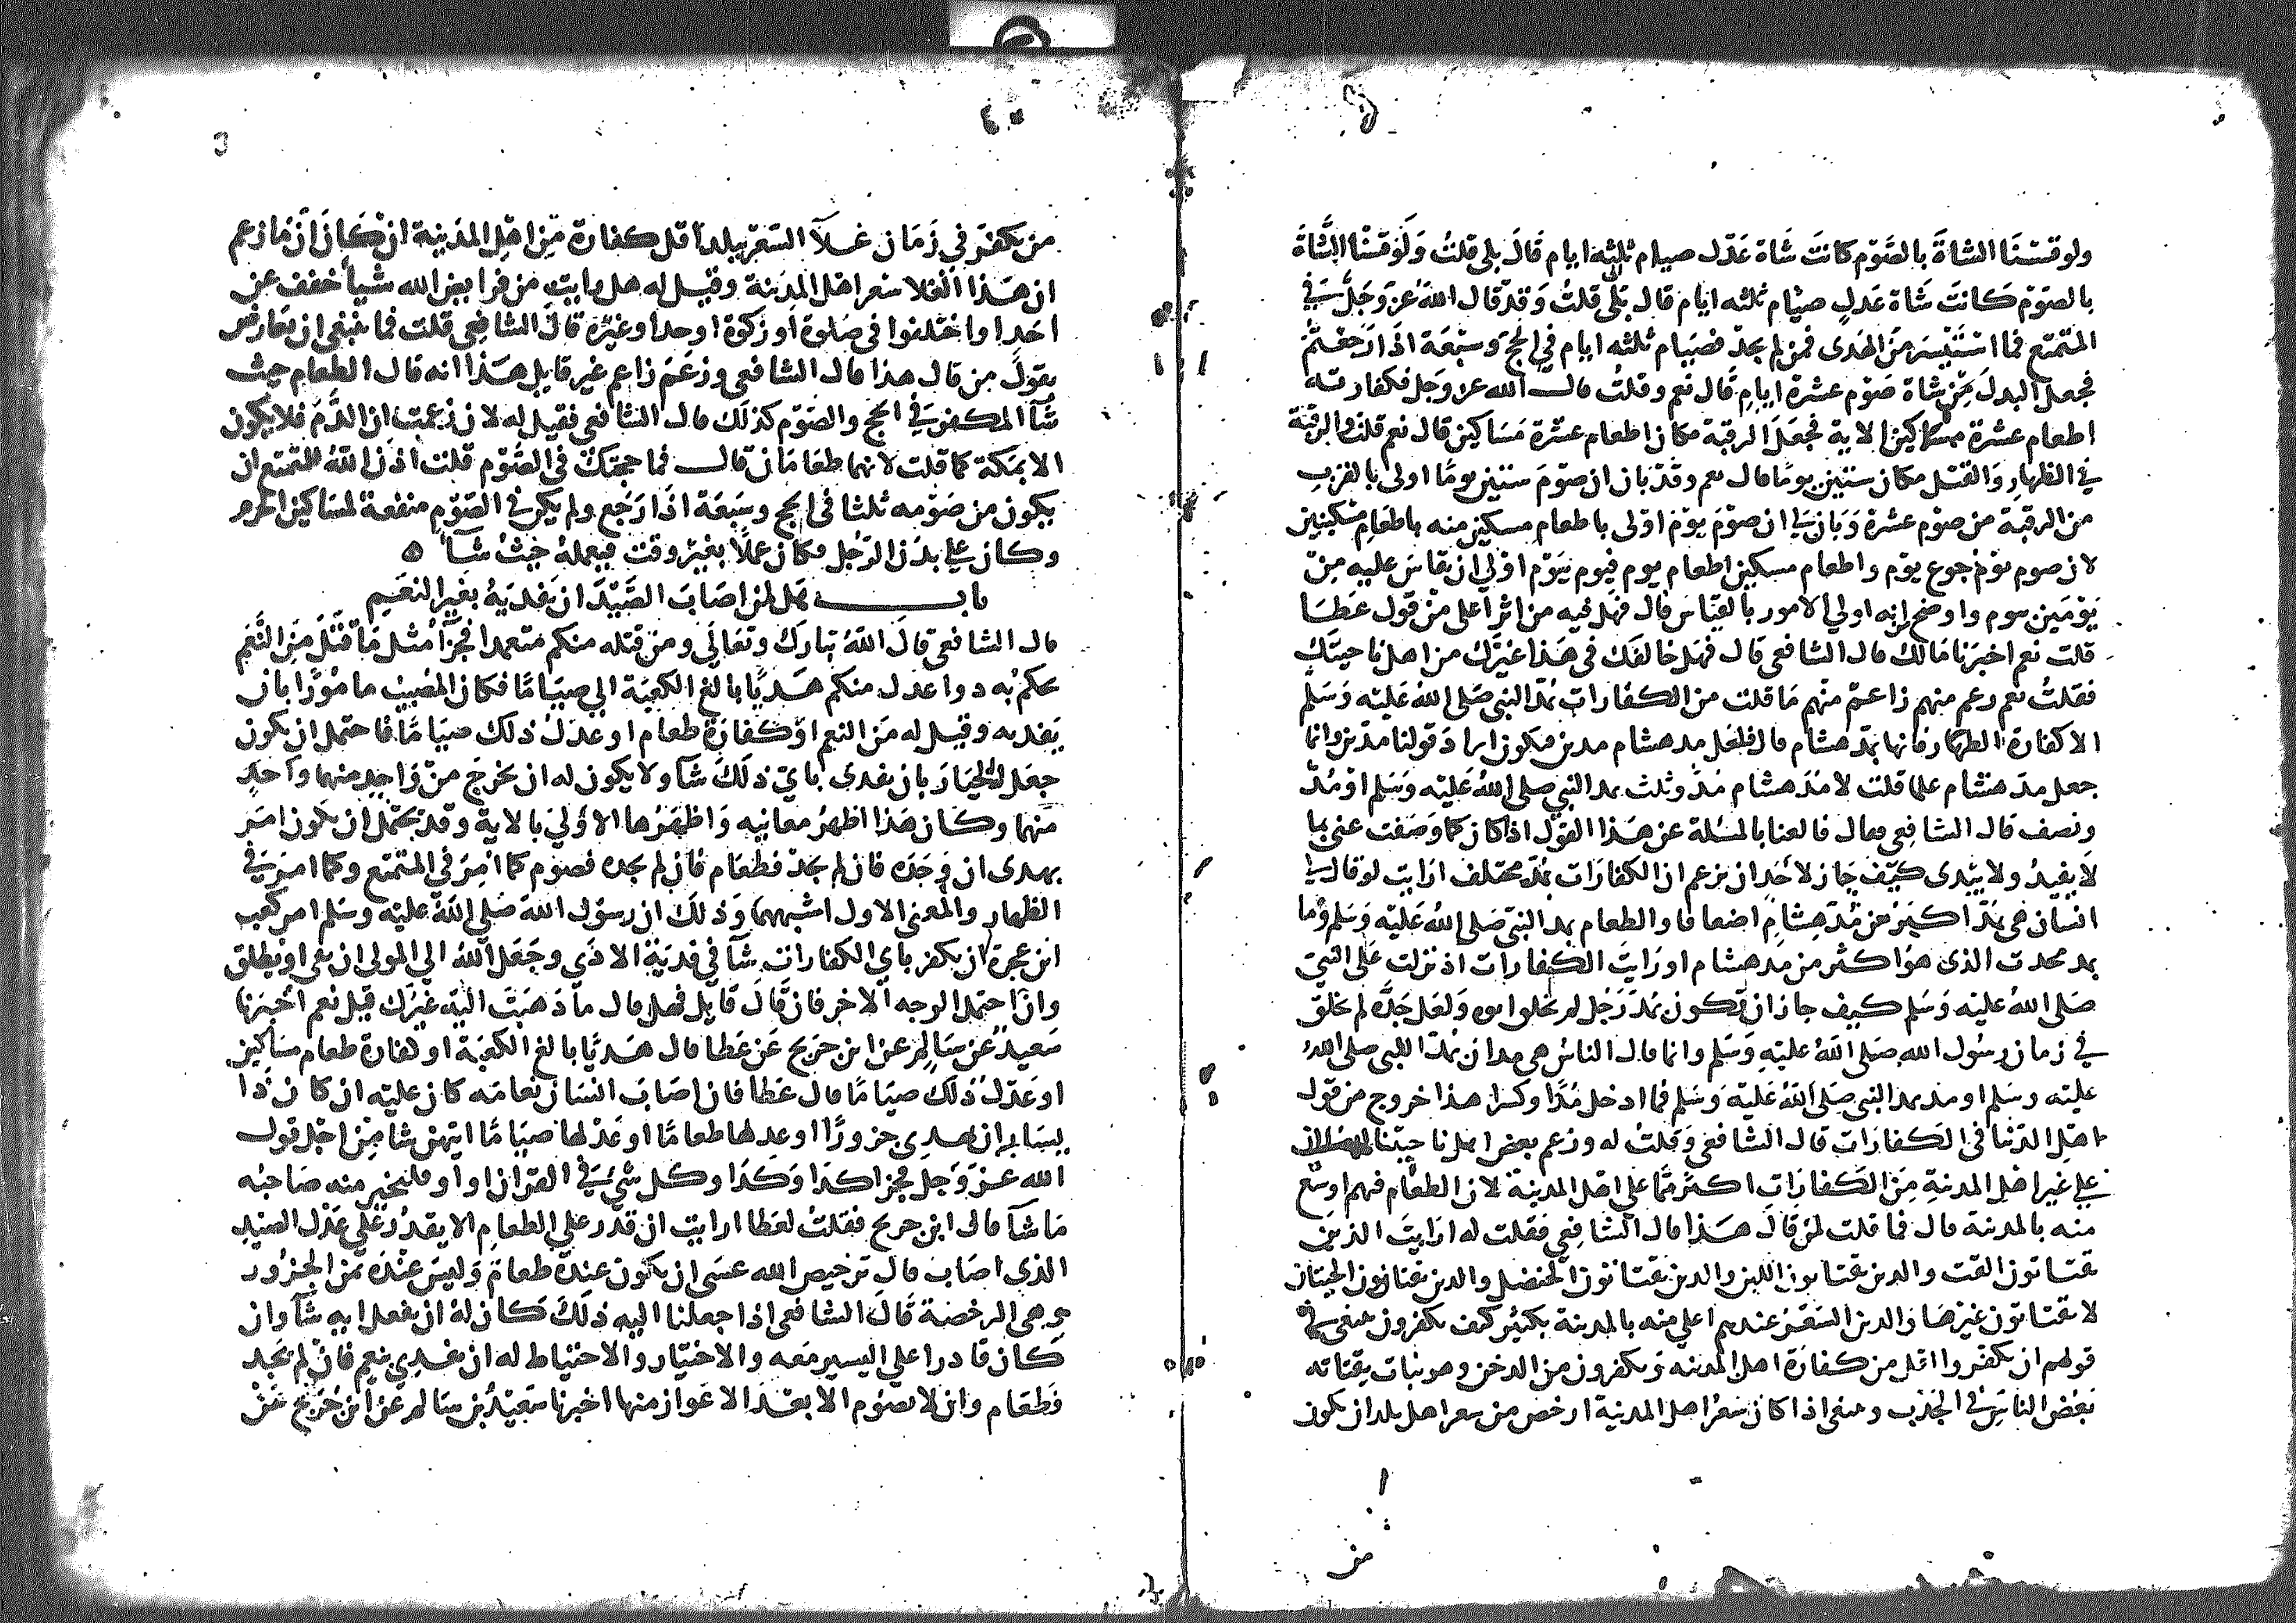 ولو قسنا الشاة بالصوم كانت شاة عدل صيام ثلثة ايام قال بلى قلت ولو قسنا الشاة
بالصوم كانت شاة عدل صيام ثلثه ايام قال بلى قلت وقد قال الله عز وجل في
المتمتع فما استيسر من الهدى فمن لم يجد فصيام ثلثه ايام في الحج وسبعة اذا رجعتم
فجعل البدل من شاة صوم عشرة ايام قال نعم وقلت قال الله عز وجل فكفارته
اطعام عشرة مساكين الاية فجعل الرقبة مكان اطعام عشرة مساكين قال نعم قلت والرقبة
في الظهار والقتل مكان ستين يوما قال نعم وقد بان ان صوم ستين يوما اولى بالقرب
من الرقبة من صوم عشرة وبان لي ان صوم يوم اولى باطعام مسكين منه باطعام مسكينين
لان صوم يوم جوع يوم واطعام مسكين اطعام يوم فيوم بيوم اولى ان يقاس عليه من
يومين بيوم واوضح من انه اولى الامور بالقياس قال فهل فيه من اثر اعلى من قول عطا
قلت نعم اخبرنا مالك قال الشافعي قال فهل خالفك في هذا غيرك من اهل ناحيتك
فقلت نعم زعم منهم زاعم منهم ما قلت من الكفارات بمد النبي صلى الله عليه وسلم
الا كفارة الظهار فانها بمد هشام قال فلعل مد هشام مدين فيكون اراد قولنا مدين وانما
جعل مد هشام علما قلت لا مد هشام مد وثلث بمد النبي صلى الله عليه وسلم او مد
ونصف قال الشافعي فقال فالغنا بالمسلة عن هذا القول اذا كان كما وصفت غنى بما
لا يعيد ولا يبدى كيف جاز لاحد ان يزعم ان الكفارات بمد مختلف ارايت لو قال لي
انسان هي بمد اكبر من مد هشام اضعافا والطعام بمد النبي صلى الله عليه وسلم وما
بمد محدث الذى هو اكثر من مد هشام او رايت الكفارات اذ نزلت على النبي
صلى الله عليه وسلم كيف جاز ان تكون بمد رجل لم يخلق ابوه ولعل جده لم يخلق
في زمان رسول الله صلى الله عليه وسلم وانما قال الناس هي مدان بمد النبي صلى الله
عليه وسلم او مد بمد النبي صلى الله عليه وسلم فما ادخل مدا وكسرا هذا خروج من قول
اهل الدنيا في الكفارات قال الشافعي وقلت له وزعم بعض اهل ناحيتنا
على غير اهل المدينة من الكفارات اكثر مما على اهل المدينة لان الطعام فيهم اوسع
منه بالمدينة قال فما قلت لمن قال هذا قال الشافعي فقلت له ارايت الذين
يقتاتون الفث والذين يقتاتون اللبن والذين يقتاتون الحنضل والذين يقتاتون الحيتان
لا يقتاتون غيرها والذين السعر عندهم اعلى منه بالمدينة بكثير كيف يكفرون ينبغى في
قولهم ان يكفروا اقل من كفارة اهل المدينه ويكفرون من الدخن وهو نبات يقتاته
بعض الناس في الجدب وينبغى اذا كان سعر اهل المدينة ارخص من سعر اهل بلد ان يكون
من
من يكفر في زمان غلا السعر ببلد اقل كفارة من اهل المدينة ان كان انما زعم
ان هذا لغلا سعر اهل المدينة وقيل له هل رايت من فرايض الله شيا خفف عن
احد او اختلفوا في صلوة او زكوة او حد او غيره قال الشافعي قلت فما ينبغى ان يعارض
بقول من قال هذا قال الشافعي وزعم زاعم غير قايل هذا انه قال الطعام حيث
شآ المكفر في الحج والصوم كذلك قال الشافعي فقيل له لان زعمت ان الدم فلا يكون
الا بمكة كما قلت لانهما طعامان قال فما حجتك في الصوم قلت اذن الله للمتمتع ان
يكون من صومه ثلثا في الحج وسبعة اذا رجع ولم يكن في الصوم منفعة لمساكين الحرم
وكان على بدن الرجل فكان عملا بغير وقت فيعمله حيث شآ ه
باب هل لمن اصاب الصيد ان يفديه بغير النعم
قال الشافعي قال الله تبارك وتعالى ومن قتله منكم متعمدا فجزآ مثل ما قتل من النعم
يحكم به ذوا عدل منكم هديا بالغ الكعبة الى صياما فكان المصيب ماموزا بان
يفديه وقيل له من النعم او كفارة طعام او عدل ذلك صياما فاحتمل ان يكون
جعل له الخيار بان يفدى باي ذلك شآ ولا يكون له ان يخرج من واحد منهما واحد
منهما وكان هذا اظهر معانيه واظهرها الاولى بالاية وقد يحتمل ان يكون امر
بهدى ان وجده فان لم يجد فطعام فان لم يجده فصوم كما امر في المتمتع وكما امر في
الظهار والمعنى الاول اشبههما وذلك ان رسول الله صلى الله عليه وسلم امر كعب
ابن عجرة ان يكفر باي الكفارات شآ في فدية الاذى وجعل الله الى المولى ان يفى او يطلق
وان احتمل الوجه الاخر فان قال قايل فهل قال ما ذهبت اليه غيرك قيل نعم اخبرنا
سعيد عن سالم عن ابن جريح عن عطا قال هديا بالغ الكعبة او كفارة طعام مساكين
او عدل ذلك صياما قال عطا فان اصاب انسان نعامه كان عليه ان كان ذا
يسار ان يهدى جزورا او عدلها طعاما او عدلها صياما ايتهن شا من اجل قول
الله عز وجل فجزا كذا وكذا وكل شي في القران او او فليختر منه صاحبه
ما شآ قال ابن جريح فقلت لعطا ارايت ان قدر على الطعام الا يقدر على عدل الصيد
الذى اصاب قال ترخيص الله عسى ان يكون عنده طعام وليس عنده ثمن الجزور
وهى الرخصة قال الشافعى اذا جعلنا اليه ذلك كان له ان يفعل ايه شآ وان
كان قادرا على اليسير معه والاختيار والاحتياط له ان يفدى بنعم فان لم يجد
فطعام وان لا يصوم الا بعد الاعواز منها اخبرنا سعيد بن سالم عن ابن جريح عن